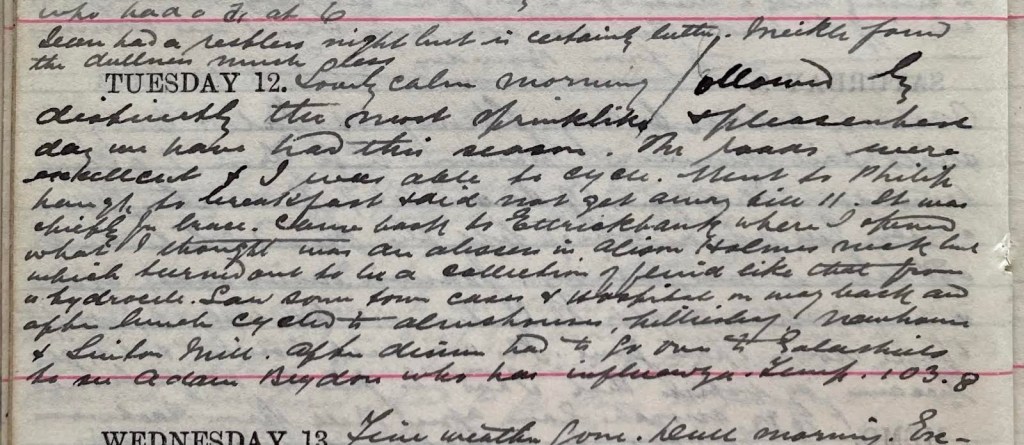 who had a at 6
Jean had a restless night but is certainly better. Meikle found
the dullness much less
TUESDAY 12. Lovely calm morning followed by
distinctly the most springlike & pleasantest
day we have had this season. The roads were
excellent & I was able to cycle. Went to Philip
haugh to breakfast & did not get away till 11. It was
chiefly for Grace. Came back to Ettrickbank where I opened
what I thought was an abscess in Alison Holmes neck but
which turned out to be a collection of fluid like that from
a hydrocele. Saw some town cases & Hospital on way back and
after lunch cycled to almshouses, Newhouse
& Linton Mill. After dinner had to go over to Galashiels
to see Adam Brydon who has influenza. Temp. 103.8
WEDNESDAY 13. Fine weather gone. Dull morning. Exc-